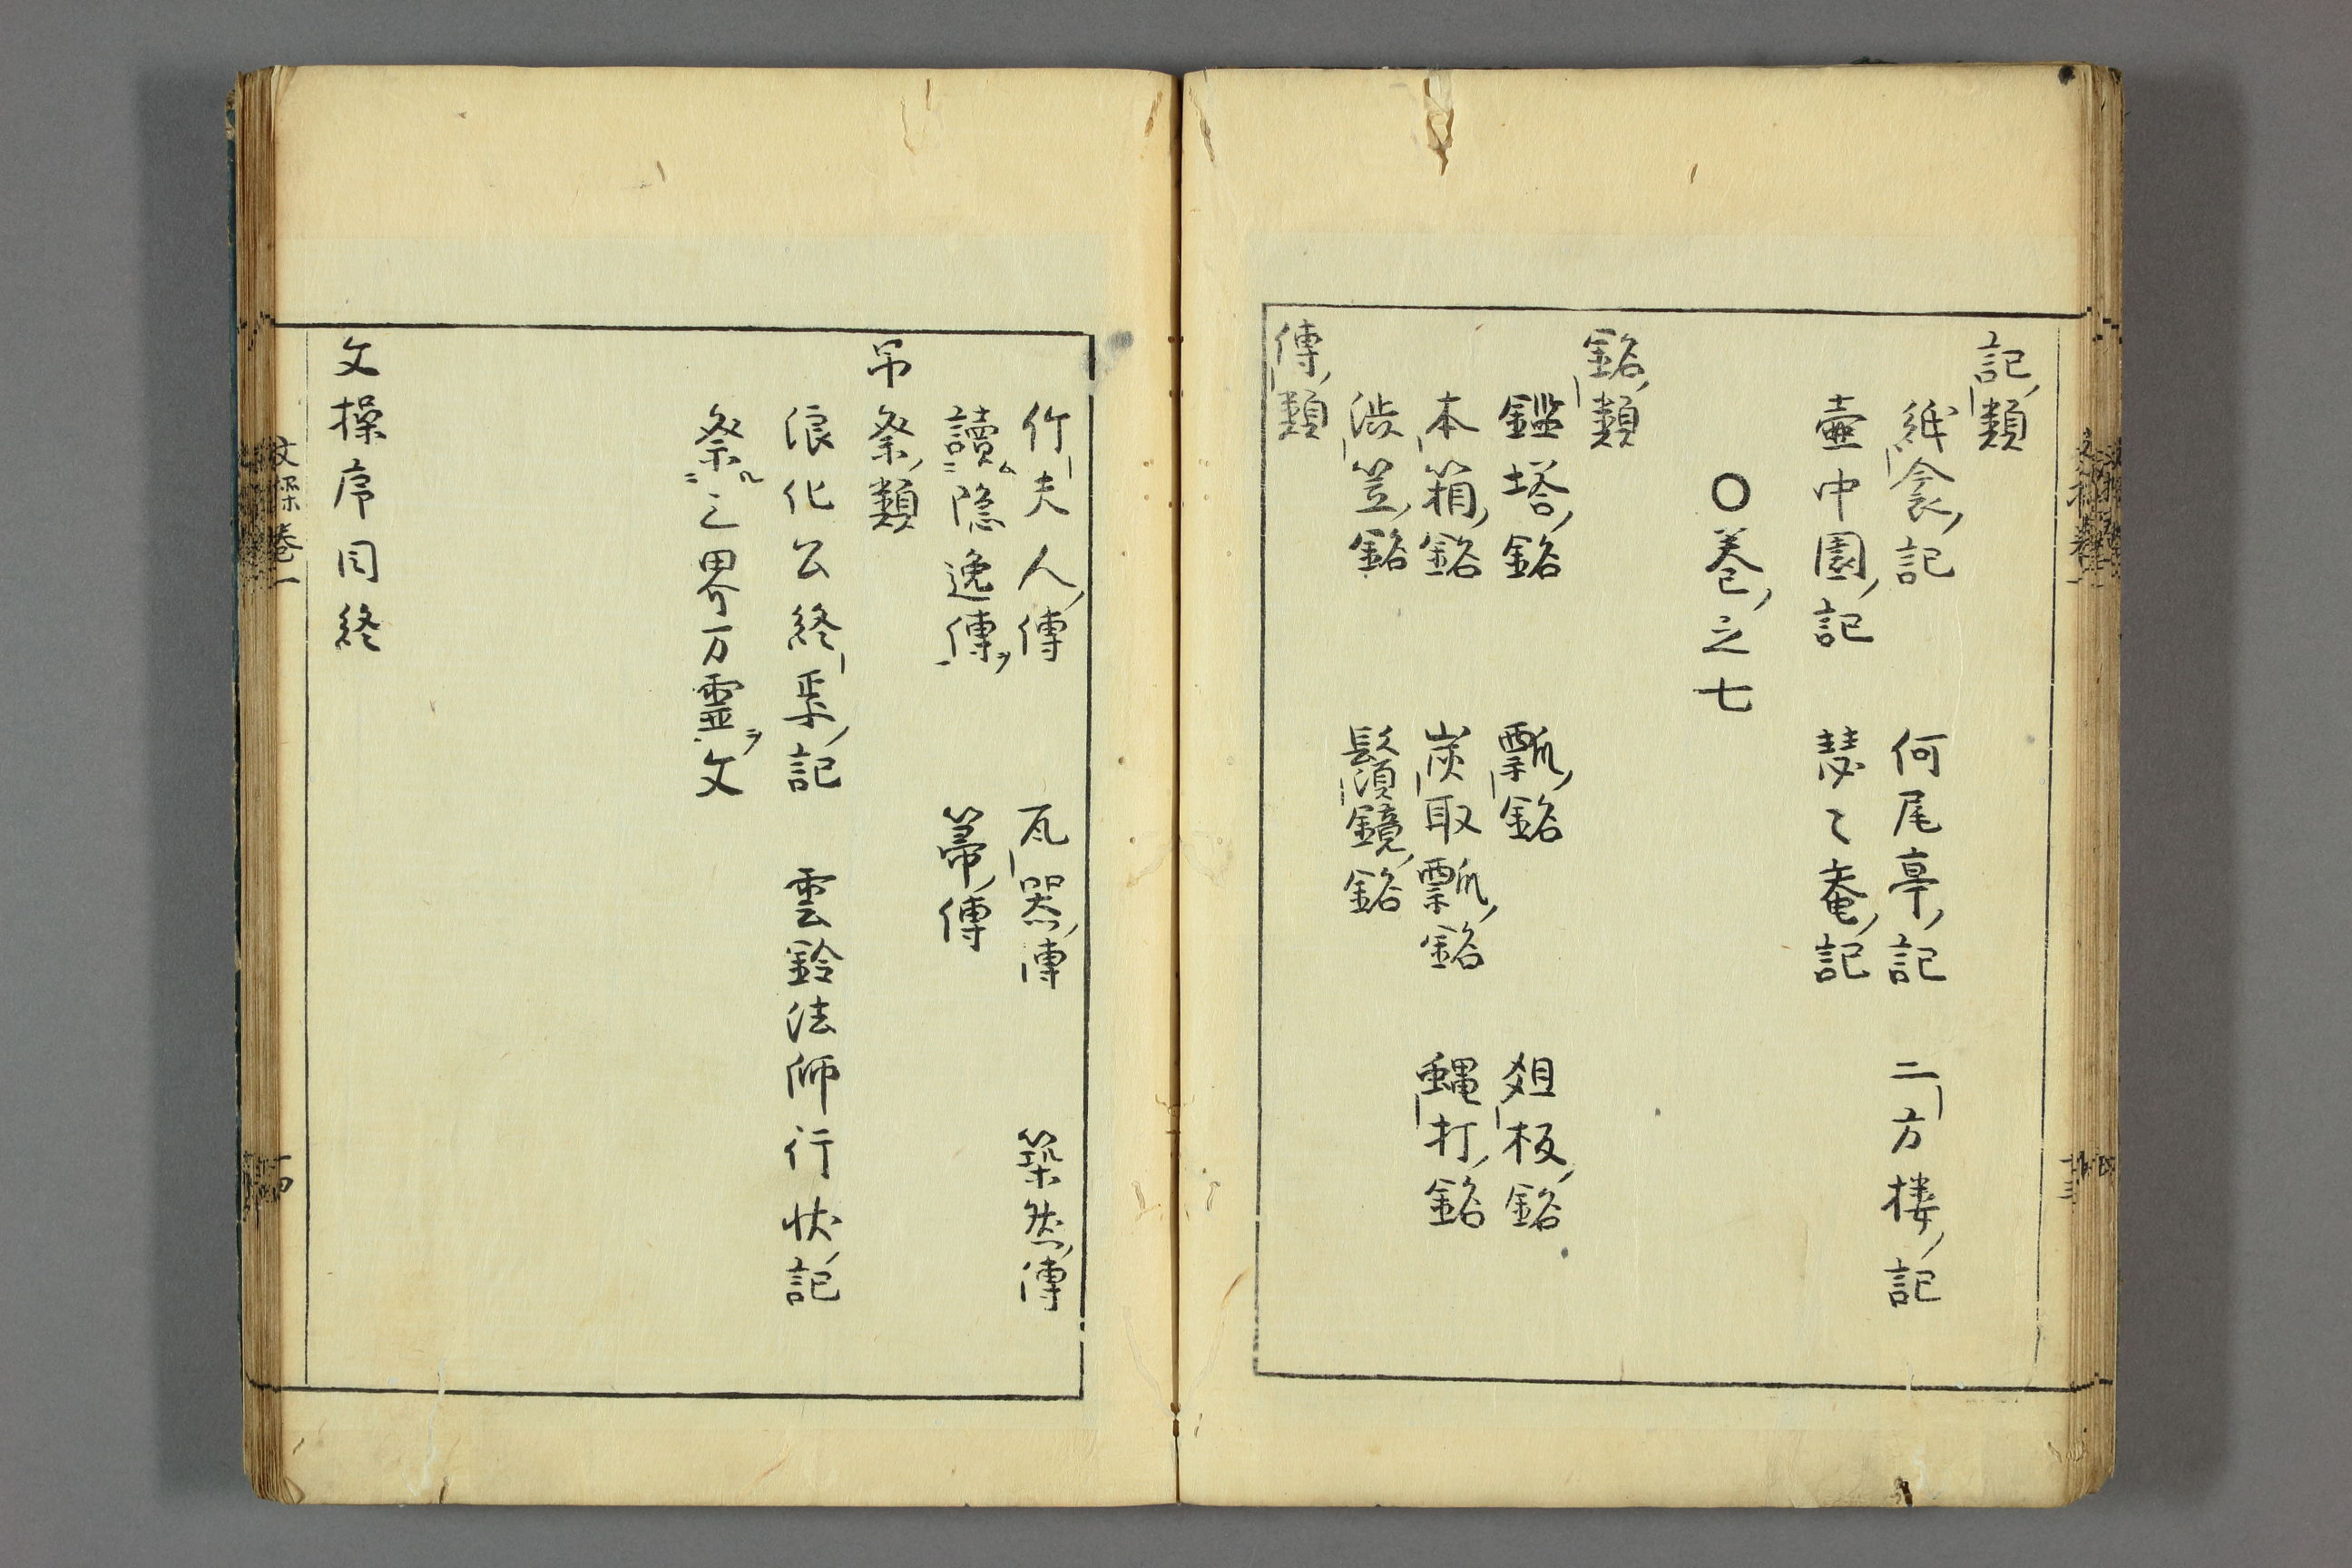 記類
紙衾記　何尾亭記　二方楼記
壷中園記　瑟〻庵記
〇巻之七
銘類
鑑塔銘　瓢銘　爼板銘
本箱銘　炭取瓢銘　蝿打銘
渋笠銘　鬚鏡銘
傳類
竹夫人傳　瓦器傳　築然傳
讀ム二隠逸傳ヲ一　箒傳
吊祭類
浪化公終焉記　雲鈴法師行状記
祭ル二三界万霊ヲ一文
文操序目終
文操巻一